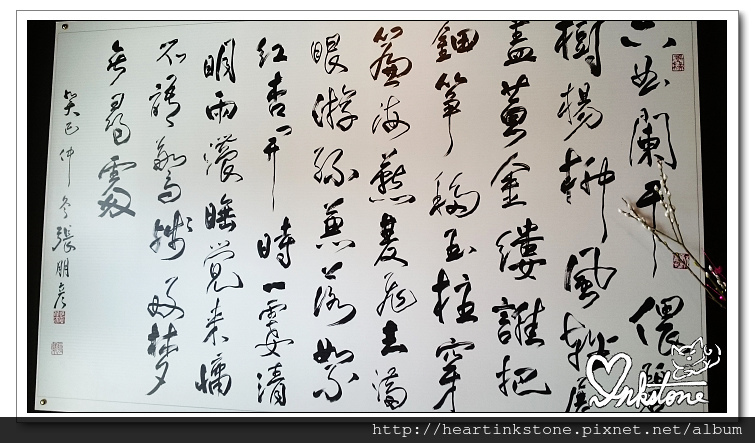 六曲闌干偎碧
樹楊柳風輕展
盡黃金縷誰把
鈿箏移玉柱穿
簾海燕雙飛去滿
眼游絲兼落絮
紅杏開時一霎清
明雨濃睡覺來慵
不語驚殘好夢
無尋處
癸巳仲冬張明彥
Inkstone
http://heartinkstone.pixnet.net/album